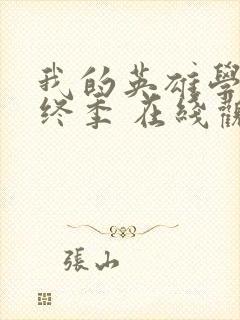 我的英雄學
终季 在线觀
張山